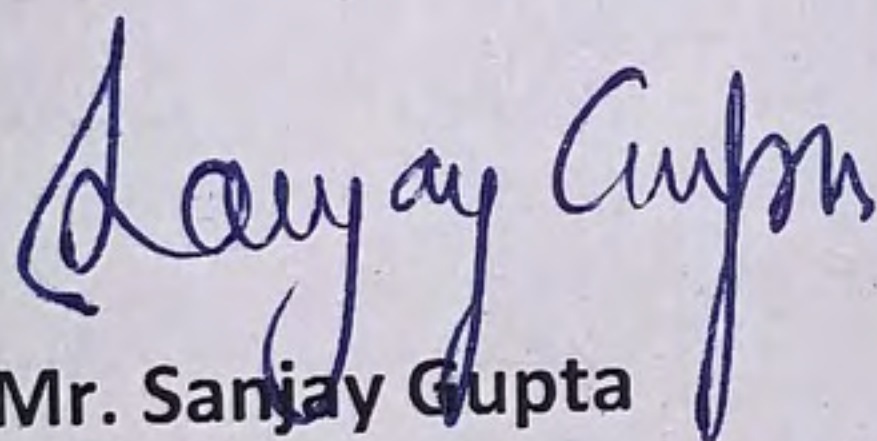 Sanjay Gupta
Mr. Sanjay Gupta